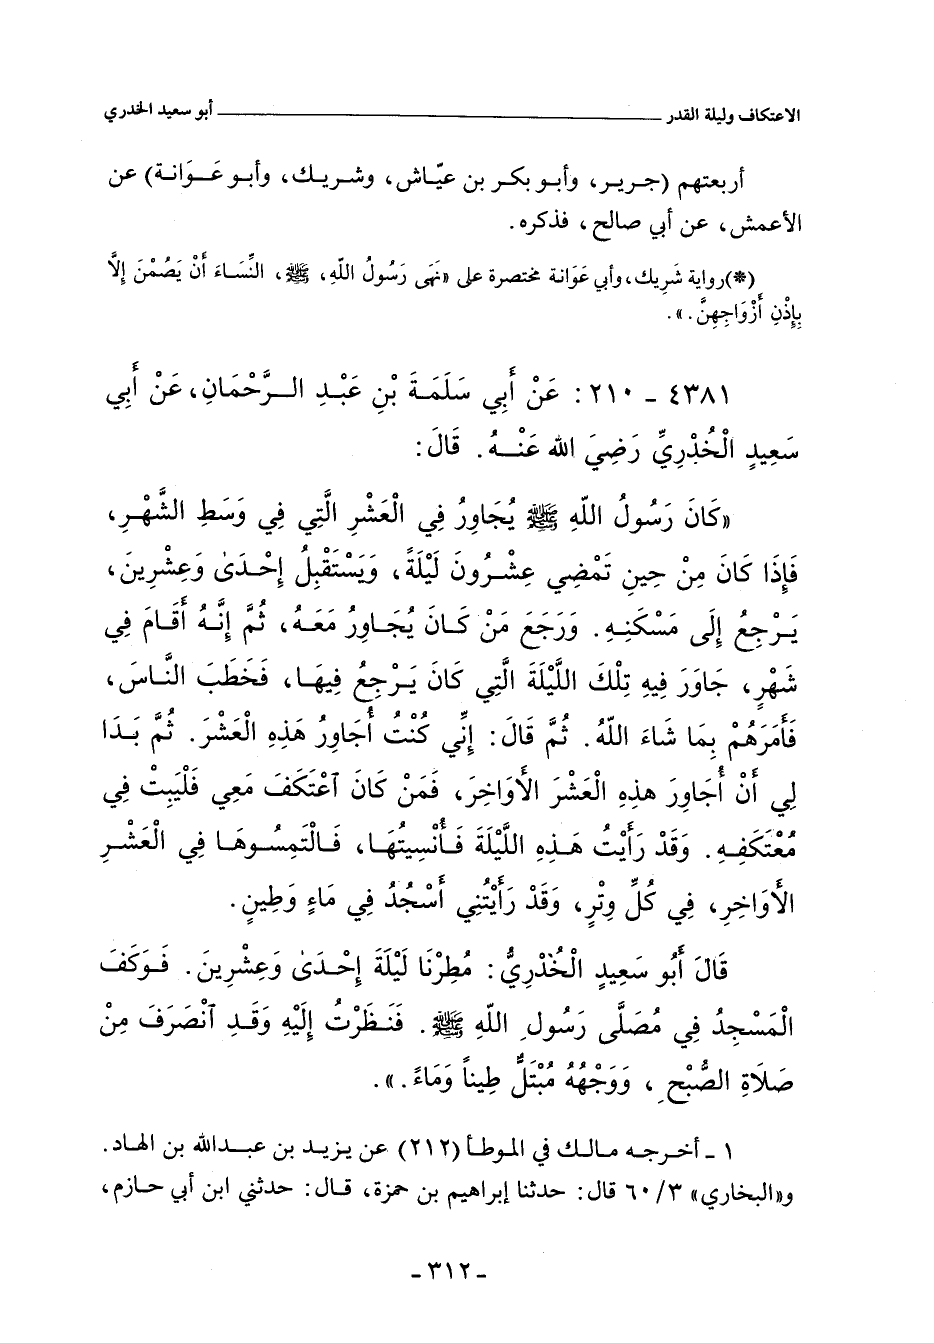 الاعتكاف وليلة القدر ـــــــــــــــــ أبو سعيد الخدري
أربعتهم (جرير، وأبو بكر بن عيّاش، وشريك، وأبو عَوَانة) عن
الأعمش، عن أبي صالح، فذكره.
(*) رواية شَرِيك، وأبي عَوَانة مختصرة على «نَهَى رَسُولُ اللّهِ، ﷺ، النِّسَاءَ أَنْ يَصُمْنَ إِلَّا
بِإِذْنِ أَزْوَاجِهِنَّ.».
٤٣٨١ - ٢١٠: عَنْ أَبِي سَلَمَةَ بْنِ عَبْدِ الرَّحْمَانِ، عَنْ أَبِي
سَعِيدٍ الْخُدْرِيِّ رَضِيَ الله عَنْهُ. قَالَ:
«كَانَ رَسُولُ اللّهِ ﷺ يُجَاوِرُ فِي الْعَشْرِ الَّتِي فِي وَسَطِ الشَّهْرِ،
فَإِذَا كَانَ مِنْ حِينِ تَمْضِي عِشْرُونَ لَيْلَةً، وَيَسْتَقْبِلُ إِحْدَىٰ وَعِشْرِينَ،
يَرْجِعُ إِلَى مَسْكَنِهِ. وَرَجَعَ مَنْ كَانَ يُجَاوِرُ مَعَهُ، ثُمَّ إِنَّهُ أَقَامَ فِي
شَهْرٍ، جَاوَرَ فِيهِ تِلْكَ اللَّيْلَةَ الَّتِي كَانَ يَرْجِعُ فِيهَا، فَخَطَبَ النَّاسَ،
فَأَمَرَهُمْ بِمَا شَاءَ اللّهُ. ثُمَّ قَالَ: إِنِّي كُنْتُ أُجَاوِرُ هَذِهِ الْعَشْرَ. ثُمَّ بَدَا
لِي أَنْ أُجَاوِرَ هذِهِ الْعَشْرَ الأَوَاخِرَ، فَمَنْ كَانَ ٱعْتَكَفَ مَعِي فَلْيَبِتْ فِي
مُعْتَكَفِهِ. وَقَدْ رَأَيْتُ هَذِهِ اللَّيْلَةَ فَأُنْسِيتُهَا، فَالْتَمِسُوهَا فِي الْعَشْرِ
الأَوَاخِرِ، فِي كُلِّ وِتْرٍ، وَقَدْ رَأَيْتُنِي أَسْجُدُ فِي مَاءٍ وَطِينٍ.
قَالَ أَبُو سَعِيدٍ الْخُدْرِيُّ: مُطِرْنَا لَيْلَةَ إِحْدَىٰ وَعِشْرِينَ. فَوَكَفَ
الْمَسْجِدُ فِي مُصَلَّى رَسُولِ اللّهِ ﷺ. فَنَظَرْتُ إِلَيْهِ وَقَدِ ٱنْصَرَفَ مِنْ
صَلَاةِ الصُّبْحِ، وَوَجْهُهُ مُبْتَلٌّ طِيناً وَمَاءً.».
١ - أخرجه مالك في الموطأ (٢١٢) عن يزيد بن عبدالله بن الهاد.
و«البخاري» ٣/ ٦٠ قال: حدثنا إبراهيم بن حمزة، قال: حدثني ابن أبي حازم،
- ٣١٢ -